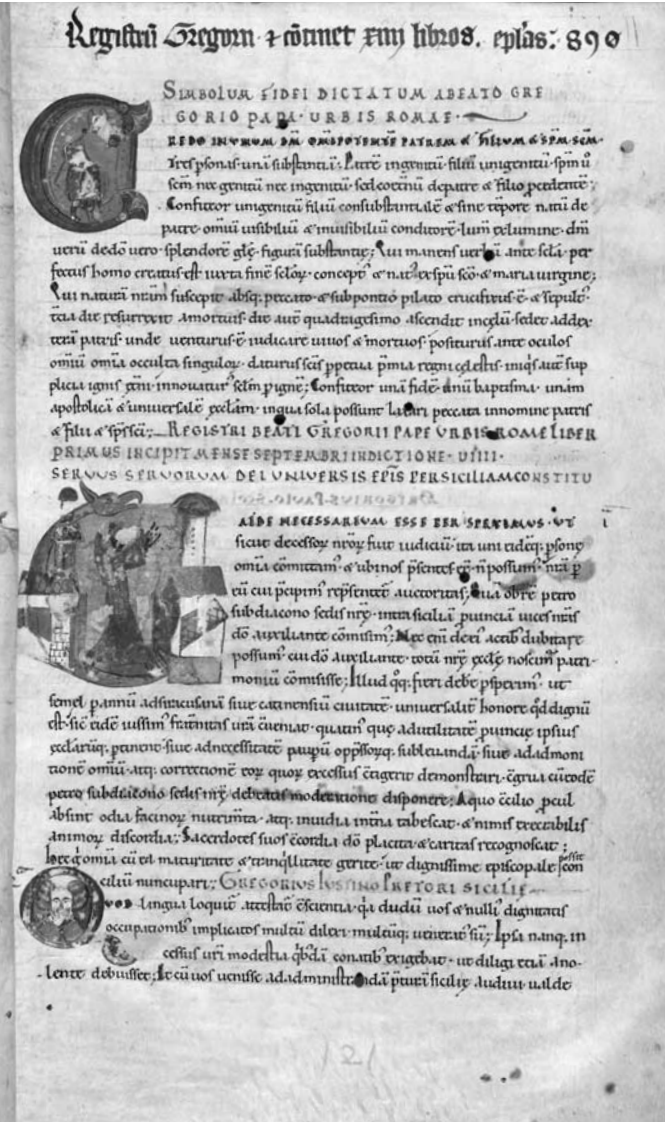 Registrũ Gregorii ⁊ cõtinet xiiij libros. eplãs: 890
SIMBOLUM FIDEI DICTATUM ABEATO GRE
GORIO PAPA · URBIS ROMAE ·
CREDO INUNUM DM̃ OMĨPOTENTẼ PATREM & FILIUM & SPM̃ · SCM̃ ·
Tres psonas · unã substantiã; Patrẽ ingenitũ · filiũ unigenitũ · spm̃ ũ
scm̃ nec genitũ nec ingenitũ · sed coẽtnũ depatre & filio pcedentẽ;
Confiteor unigenitũ filiũ consubstantialẽ & sine tẽpore natũ de
patre · omiũ uisibiliũ & inuisibiliũ conditorẽ · lum̃ exlumine · dm̃
uerũ dedõ uero · splendorẽ glę · figurã substantię; Qui manens uerbũ ante scla · per
fectus homo creatus est iuxta finẽ sclor · concept' & nat' exspũ scõ & maria uirgine;
Qui naturã nrãm suscepit absq; peccato · & subpontio pilato crucifixus ẽ · & sepult' ·
tcia die resurrexit amortuis · die aut̃ quadragesimo ascendit incęlũ · sedet addex
terã patris · unde uenturus ẽ iudicare uiuos & mortuos · positurus ante oculos
omiũ omĩa occulta singulor · daturus scĩs ppetua pmia regni cęlestis · iniq̃s aut̃ sup
plicia ignis ętni · innouatur' sclm̃ pignẽ; Confiteor unã fidẽ · unũ baptisma · unam
apostolicã & uniuersalẽ ęcclãm · inqua sola possunt laxari peccata innomine patris
& filii & sps̃ scĩ; REGISTRI BEATI GREGORII PAPE URBIS ROME LIBER
PRIMUS INCIPIT MENSE SEPTEMBRI INDICTIONE · VIIII ·
SERVUS SERVORUM DEI UNIVERSIS EPIS̃ PER SICILIAM CONSTITU
VALDE NECESSARIUM ESSE PERSPEXIMUS · UT
sicut decessor nror fuit iudiciũ · ita uni eidẽq; psonę
omĩa cõmittam' · & ubi nos psentes eẽ ñ possum' · nrã p
eũ cui pcipim' repsentet' auctoritas; Quã obrẽ petro
subdiacono sedis nrę · intra siciliã puinciã uices nrãs
dõ auxiliante cõmisim'; Nec enĩ deei' actib' dubitare
possum' · cui dõ auxiliante · totũ nrę ęcclę noscim' patri ·
moniũ cõmisisse; Illud q̃q; fieri debe psperim' · ut
semel p annũ adsiracusanã siue catinensiũ ciuitatẽ · uniuersalit̃ honore q̃d dignũ
est · sic̃ eidẽ iussim' frat̃nitas urã cũeniat · quatin' quę adutilitatẽ puincię ipsius
ęcclarũq; ptinent · siue adnecessitatẽ paupũ oppssorq; subleuandã · siue adadmoni
tionẽ omiũ · atq; correctionẽ eor quor excessus cõtigerit demonstrari · cõgrua cũ eodẽ
petro subdiacono sedis nrę debeatis moderatione disponere; Aquo cõcilio pcul
absint odia facinor nutrimta · atq; inuidia intna tabescat · & nimis execrabilis
animor discordia; Sacerdotes suos cõcordia dõ placita & caritas recognoscat;
hęc g̃ omĩa cũ ea maturitate & tranq̃llitate gerite · ut dignissime episcopale possit con
ciliũ nuncupari; GREGORIUS IUSTINO PRETORI SICILIE
QUOD lingua loquit̃ attestat̃ cõscientia · q̃a dudũ uos & nullis dignitatis
occupationib' implicatos multũ dilexi · multũq; ueneratus sũ; Ipsa nanq; in
cessus uri modestia q̃bdã conatib' exigebat · ut diligi etiã ano ·
lente debuisset; Et cũ uos uenisse adadministrandã pturã sicilię audiui ualde